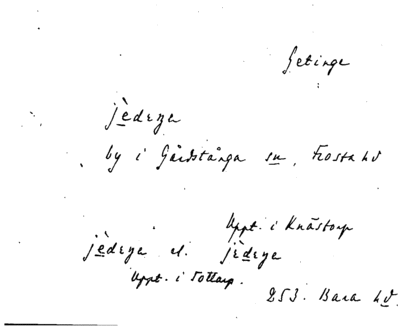 Getinge
jèdeŋe
by i Gårdstånga sn, Frosta hd
Uppt. i Knästorp
jèdeŋe el. jèdeŋe
Uppt. i Tottarp.
253. Bara hd.